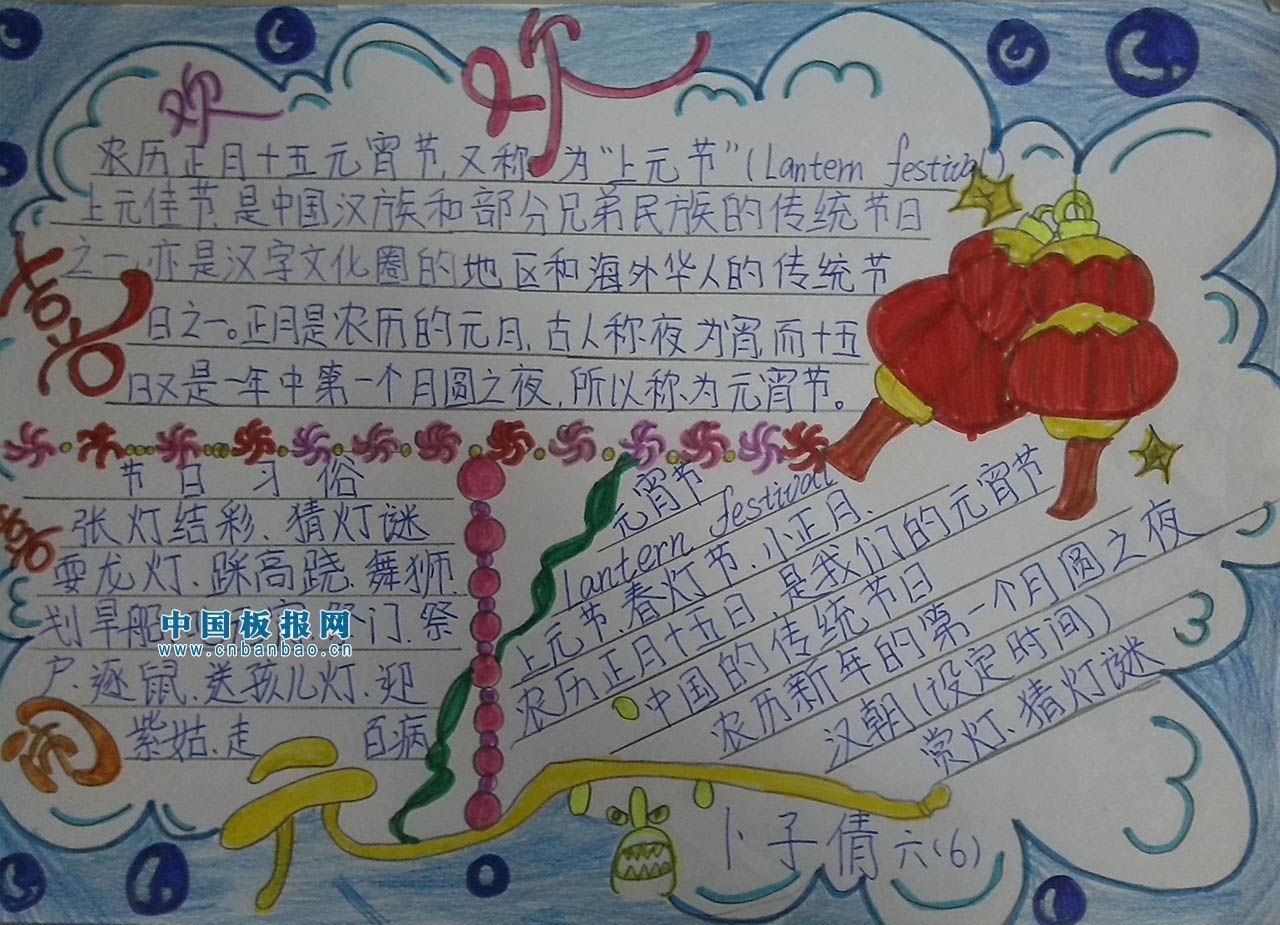 欢
农历正月十五元宵节,又称为“上元节”(Lantern festival)
上元佳节,是中国汉族和部分兄弟民族的传统节日
之一,亦是汉字文化圈的地区和海外华人的传统节
日之一。正月是农历的元月,古人称夜为宵,而十五
日又是一年中第一个月圆之夜,所以称为元宵节。
节日习俗
张灯结彩、猜灯谜
耍龙灯、踩高跷、舞狮、
划旱船 门、祭
户、逐鼠、送孩儿灯、迎
紫姑、走 百病
中国板报网
www.cnbanbao.cn
元宵节
lantern festival
上元节、春灯节、小正月、
农历正月十五日 是我们的元宵节
中国的传统节日
农历新年的第一个月圆之夜
汉朝(设定时间)
赏灯、猜灯谜
元
卜子倩 六(6)